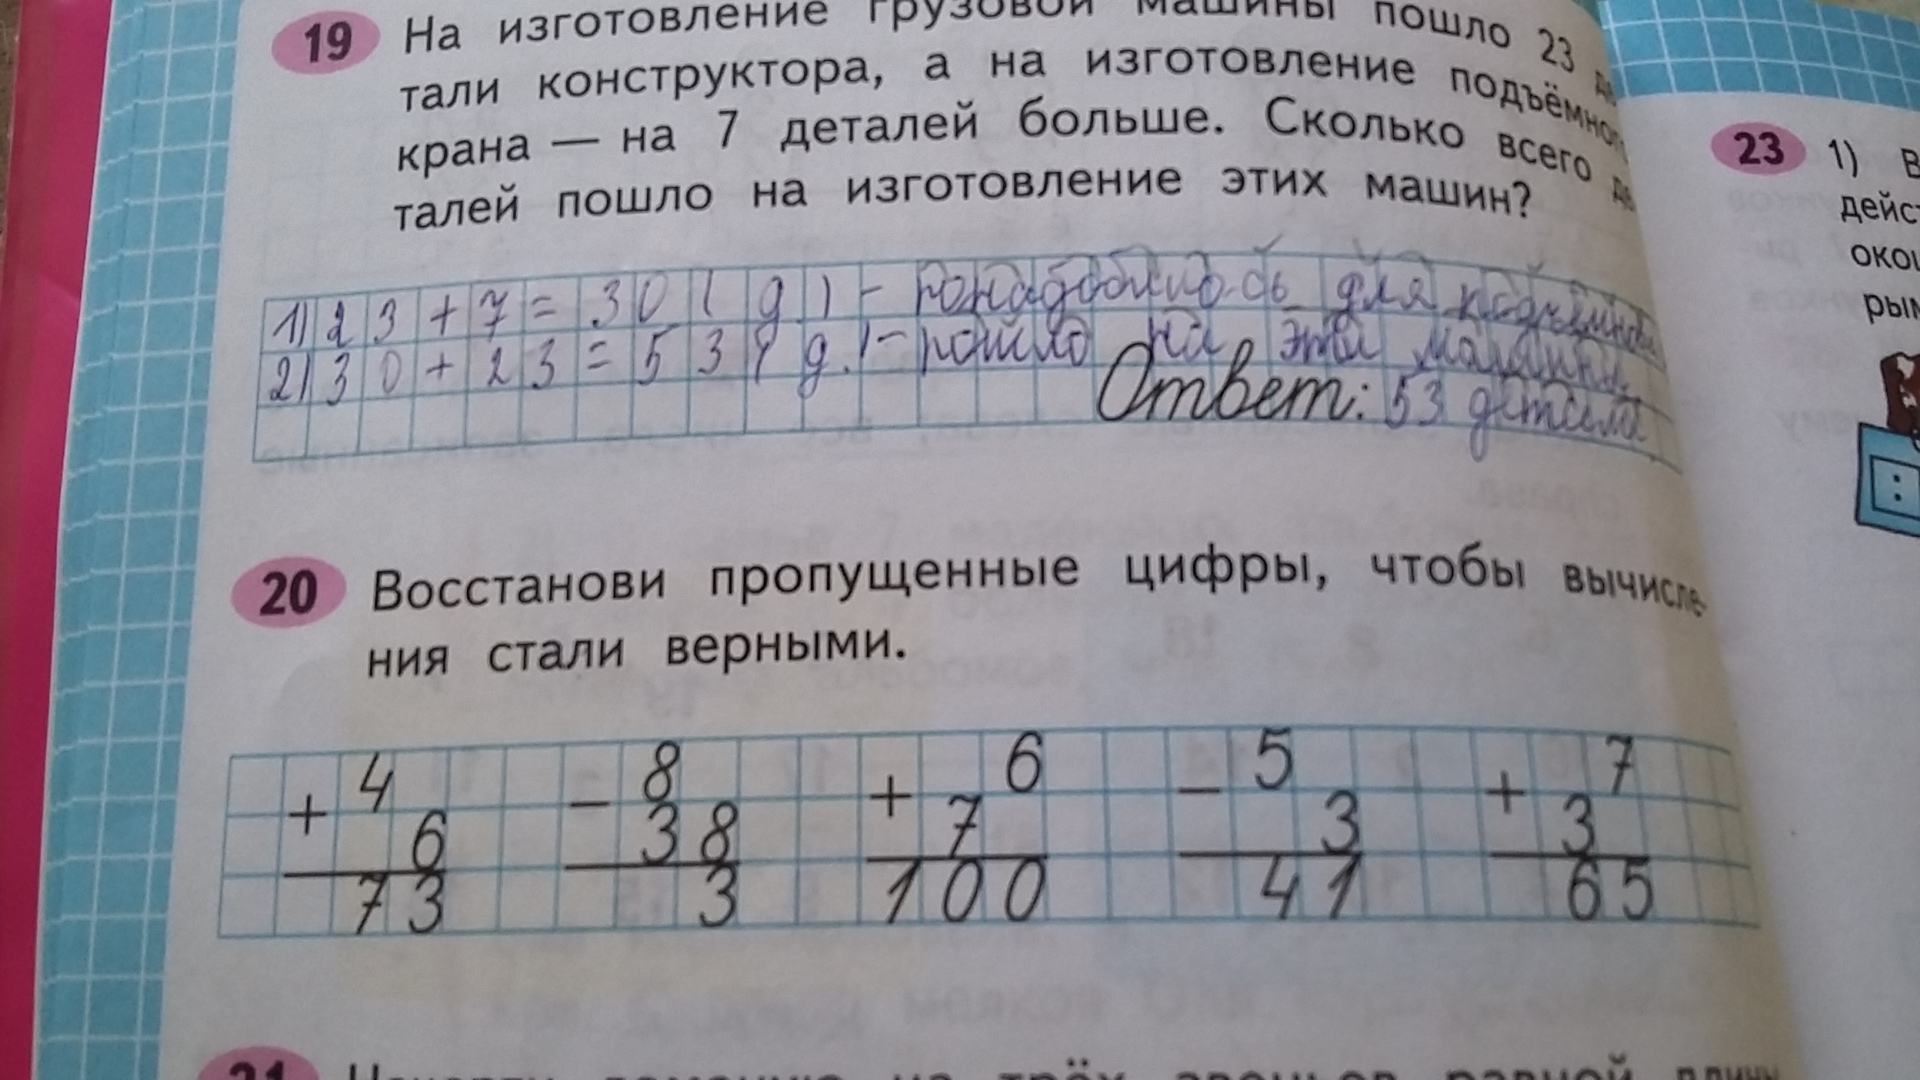 19 На изготовление грузовой машины пошло 23 де
тали конструктора, а на изготовление подъёмного
крана — на 7 деталей больше. Сколько всего де
талей пошло на изготовление этих машин?
1) 23 + 7 = 30 (д) - понадобилось для
2) 30 + 23 = 53 (д.) - пошло на эти машины.
Ответ: 53 детали
20 Восстанови пропущенные цифры, чтобы вычисле-
ния стали верными.
+ 4 − 8 + 6 − 5 + 7
6 38 7 3 3
73 3 100 41 65
21
23 1) В
дейс
око
рым
: